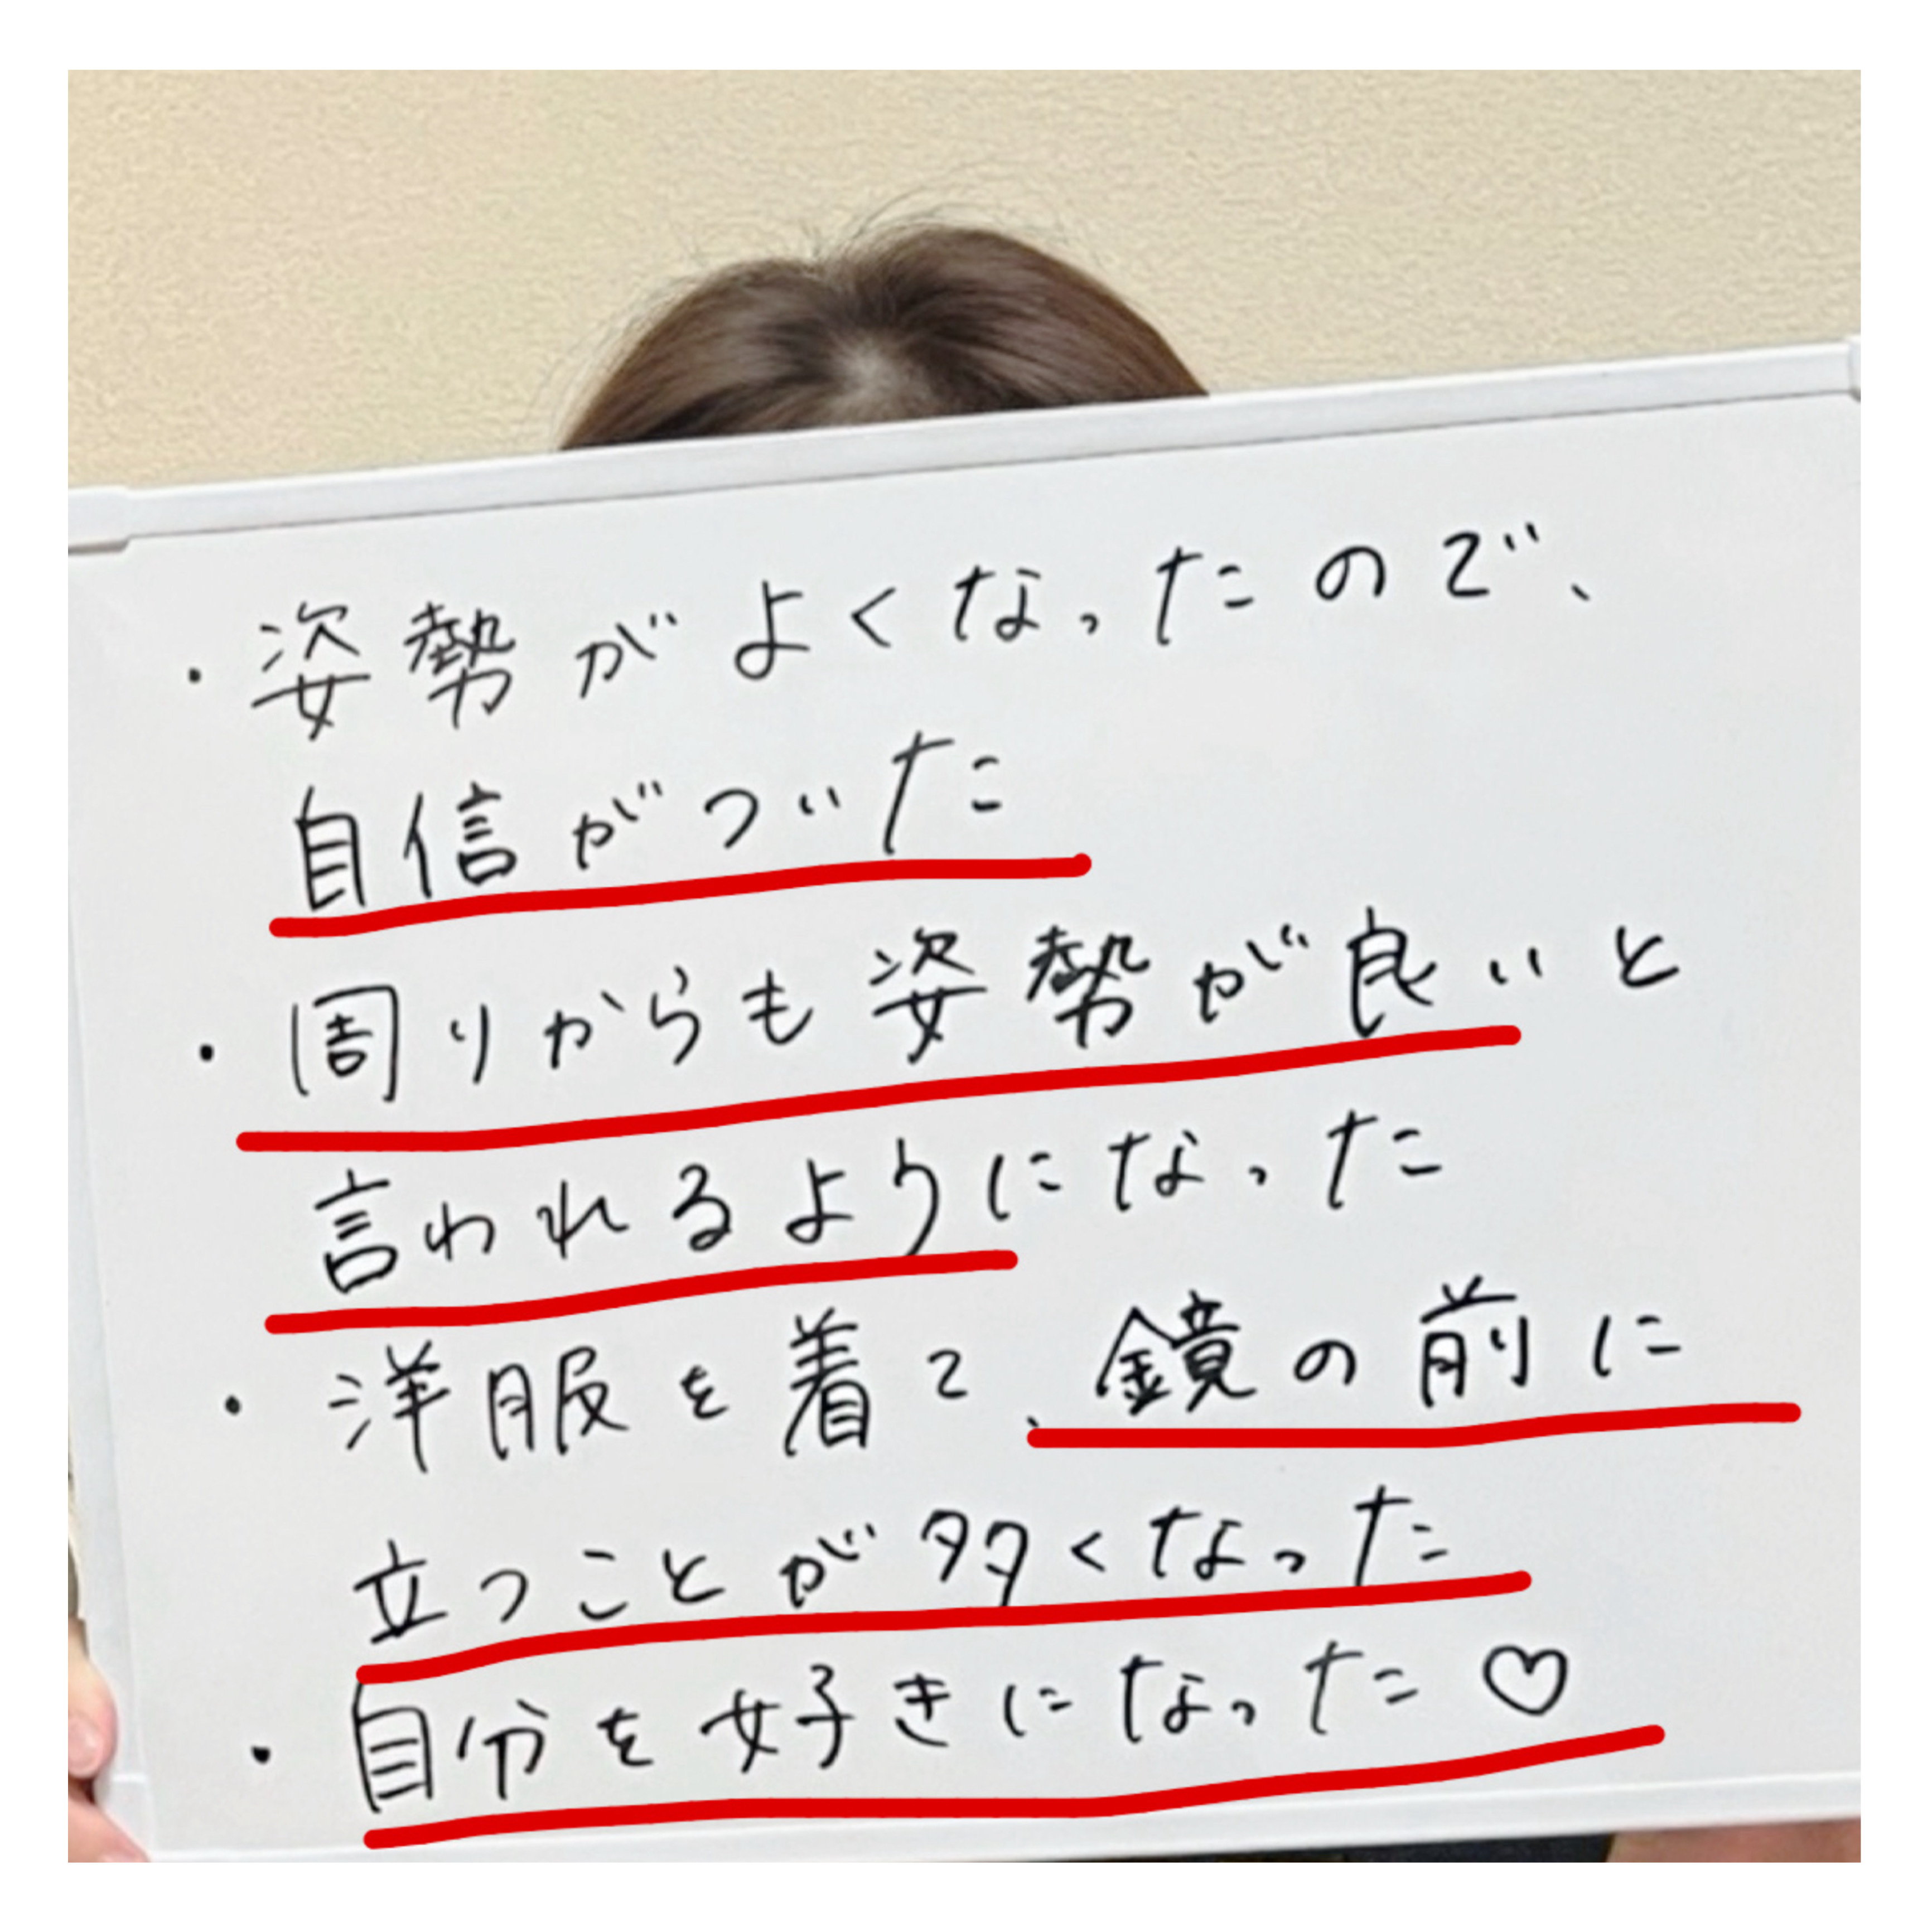 ・姿勢がよくなったので、
自信がついた
・周りからも姿勢が良いと
言われるようになった
・洋服を着て、鏡の前に
立つことが多くなった
・自分を好きになった♡